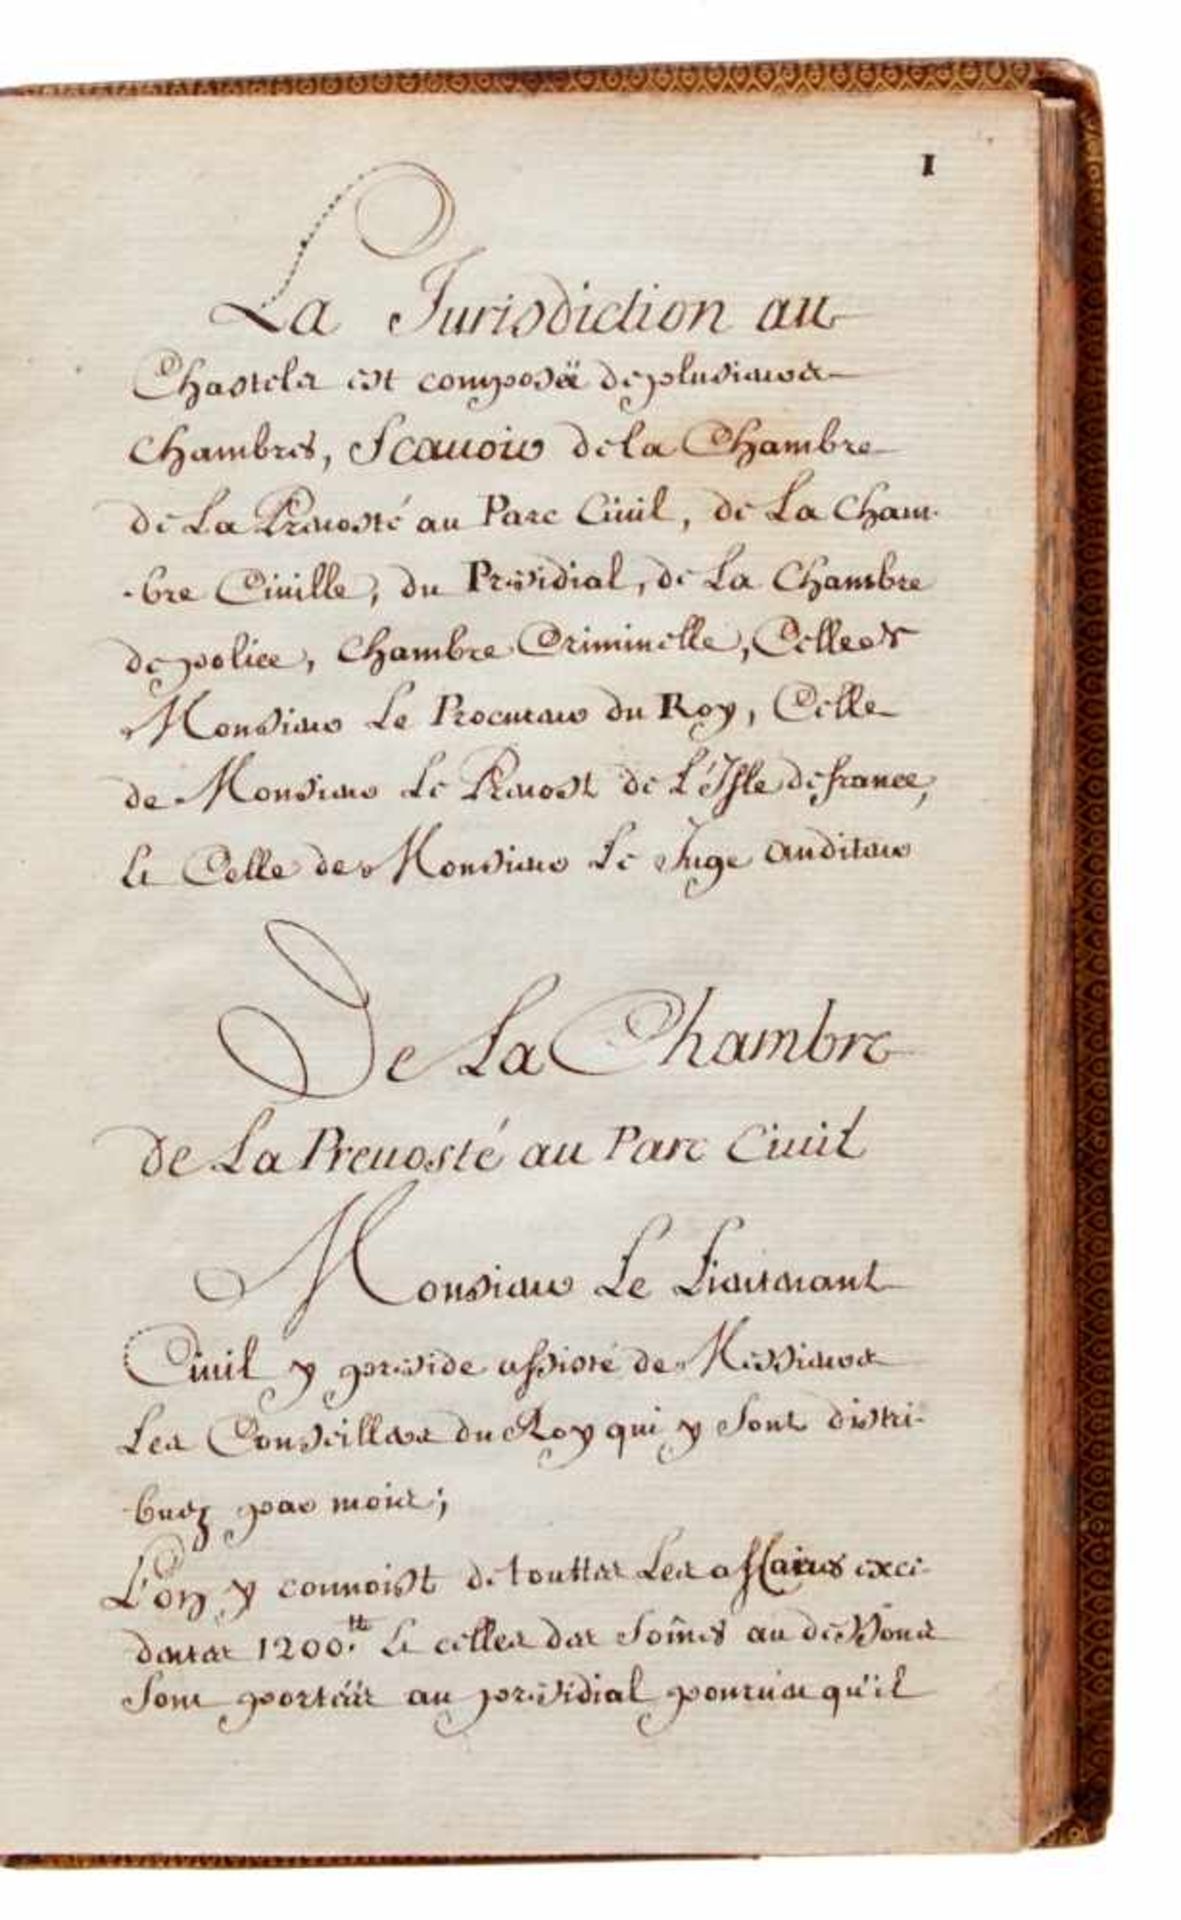 1
La Jurisdiction au
Chastelet est composeë de plusieurs
Chambres, Scauoir de la Chambre
de La Preuosté au Parc Ciuil, de La Cham-
-bre Ciuille, du Présidial, de La Chambre
de police, Chambre Criminelle, Celle de
Monsieur Le Procureur du Roy, Celle
de Monsieur Le Preuost de L'Isle de france,
Et Celle de Monsieur Le Juge auditeur
De La Chambre
de La Preuosté au Parc Ciuil
Monsieur Le Lieutenant
Ciuil y preside assisté de Messieurs
Les Conseillers du Roy qui y Sont distri-
buez par mois;
L'on y connoist de touttes Les affaires exce-
dantes 1200.tt Et celles des Som̃es au dessous
Sont porteës au présidial pourueu qu'il